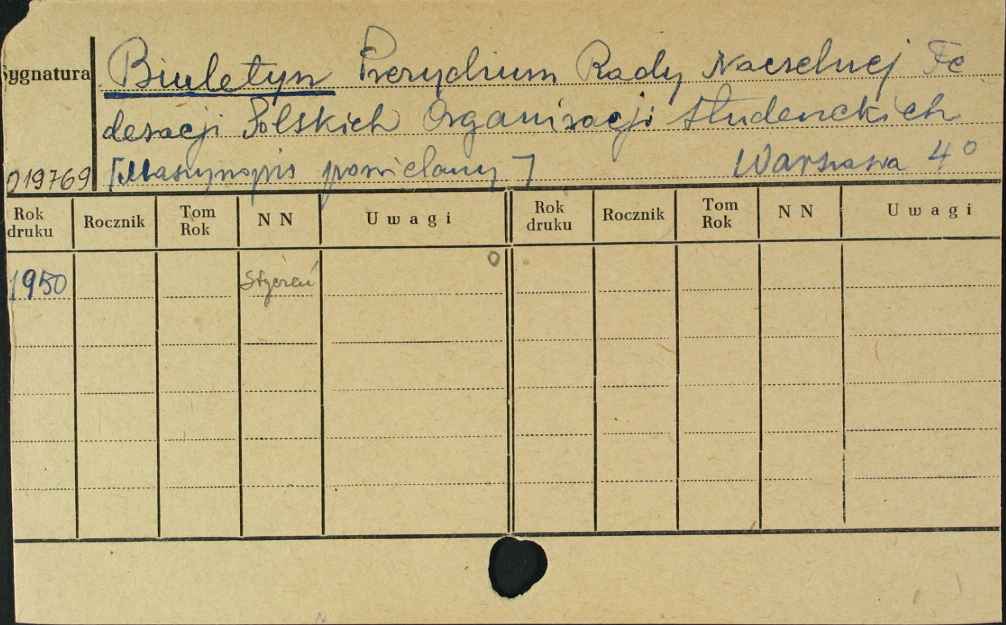 Sygnatura
Biuletyn Prezydium Rady Naczelnej Fe
deracji Polskich Organizacji Studenckich
019769 [Maszynopis powielany] Warszawa 4°
Rok druku Rocznik Tom Rok NN Uwagi Rok druku Rocznik Tom Rok NN Uwagi
1950 Styczeń